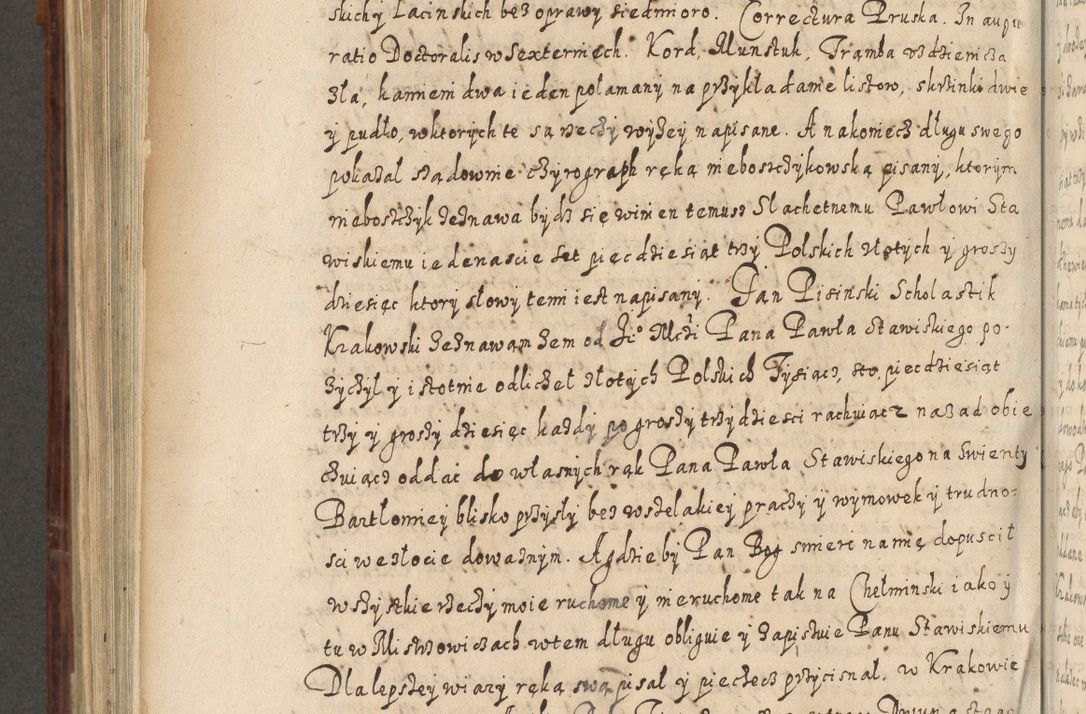 skichy Lacinskich bes oprawy siedmioro. Correctura Pruska. In augu
ratio Doctoralis w Sexterniech. Kord, Munstuk, Tramba wsdziemcza
zła, kamieni dwa ieden połamany na przykładame listow, skrzinki dwie
y pudło, wktorych te są rzeczy wyszey napisane. A nakoniecz długu swego
pokazal sządownie czyrograph ręką nieboszczykowską pisany, ktorym
nieboszczyk zeznawa bydz się winien temusz Slachetnemu Pawłowi Sta
wiskiemu iedenascie set pięcdziesiąt trzy Polskich złotych y groszy
dziesięc ktory słowy temi iest napisany. Jan Pisinski Scholastik
Krakowski zeznawam zem od Jeo Mczi Pana Pawła Stawiskiego po-
zyczył y istotnie odliczeł złotych Polskich Tysiącz, sto, piecdziesiąt
trzy y groszy dziesięc kazdy po groszy trzydziesci rachuiącz nazad obie
czuiącz oddac do własnych rąk Pana Pawła Stawiskiego na Swienty
Bartłomiey blisko przyszły bez wszelakiey praczy y wymowek y trudno-
sci we złocie dowaznym. A gdzieby Pan Bog smierc namię dopuscił
wszystkie rzeczy moie ruchome y nieruchome tak na Chełminski iako y
tu w Mistrzowiczach wtem długu obliguie y zapisuie Panu Stawiskiemu
Dla lepszey wiary ręką swą pisał y pieczecz przycisnął. w Krakowie